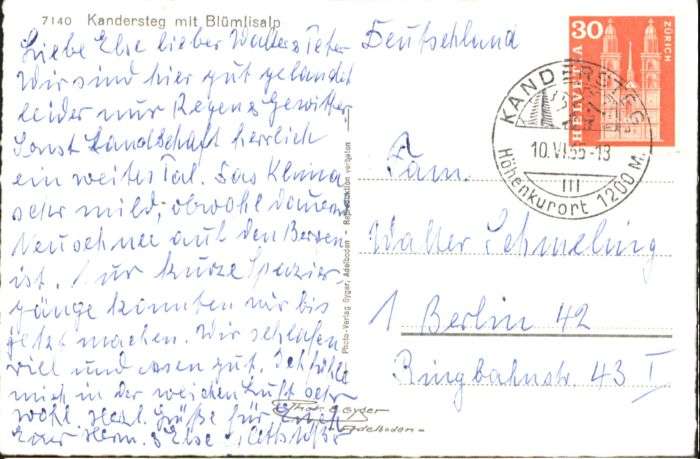 7140 Kandersteg mit Blümlisalp
Liebe Else lieber Walter & Peter
Wir sind hier gut gelandet
leider nur Regen & Gewitter
Sonst Landschaft herrlich
ein weites Tal. Das Klima
sehr mild, obwohl dauernd
Neuschnee auf den Bergen
ist. Nur kurze Spazier-
gänge konnten wir bis
jetzt machen. Wir schlafen
viel und essen gut. Ich fühle
mich in der weichen Luft sehr
wohl. Herzl. Grüße für
Euer Herm. & Else
Photo-Verlag Gyger, Adelboden - Reproduktion verboten
Phot. E. Gyger
Adelboden
Deutschland
30
HELVETIA
ZÜRICH
KANDERSTEG
10.VI.65-13
Höhenkurort 1200 M.
Fam.
Walter Schmeling
1 Berlin 42
Ringbahnstr. 43 I